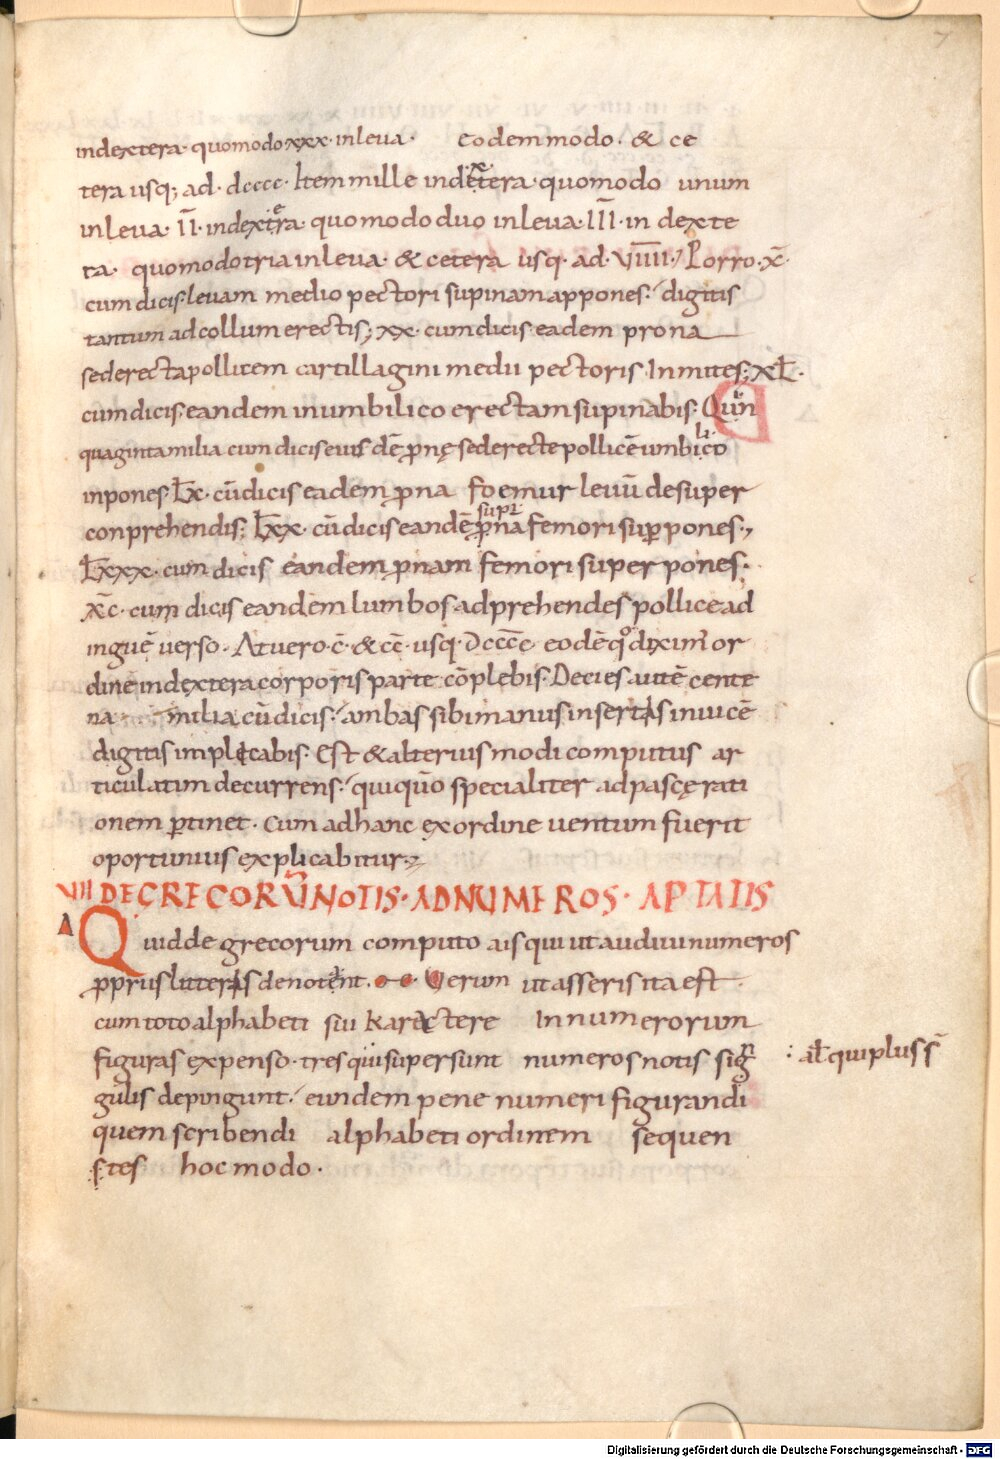 7
indextera· quomodo xxx· inleua· eodem modo· & ce
tera usq; ad· dcccc· Item mille indextera quomodo unum
inleua· II̅· indextera· quomodo duo inleua· III̅· in dexte
ra· quomodo tria inleua· & cetera usq· ad· VIIII̅· Porro· x̅·
cum dicis· leuam medio pectori supinam appones· digitis
tantum ad collum erectis; xx· cum dicis eadem prona
sed erecta pollicem cartillagini medii pectoris Inmittes; xl̅·
cum dicis eandem inumbilico erectam supinabis· Quin
quaginta milia cum dicis eius dē p̱nę sed erecte pollicē umbilico
inpones· l̅x· cū dicis eadem p̱na foemur leuū desuper
conprehendis; l̅xx· cū dicis eandē sup̱ p̱na femori sup̱pones·,
l̅xxx· cum dicis eandem p̱nam femori super pones·
x̅c· cum dicis eandem lumbos adprehendes pollice ad
inguē uerso· At uero· c̅· & c̅c̅· usq· Dc̅c̅c̅c eodē qͦ diximʾ or
dinē indextera corporis parte cōplebis· Decies autē cente
na milia cū dicis· ambas sibi manus insertis inuicē
digitis implicabis· Est & alterius modi computus ar
ticulatim decurrens· qui quō specialiter ad pascę rati
onem p̱tinet· Cum ad hanc ex ordine uentum fuerit
oportunius explicabitur·,
VII DE GRECORŪ NOTIS· AD NUMEROS· APTATIS
Quid de grecorum computo ais qui ut audiui numeros
p̱prus litteris denotent· Uerum ut asseris ita est·
cum toto alphabeti sui karactere In numerorum
figuras expenso· tres qui supersunt numeros notis sign
gulis depingunt· eundem pene numeri figurandi
quem scribendi alphabeti ordinem sequen
tes hoc modo·
: al̅ qui plus sī
Digitalisierung gefördert durch die Deutsche Forschungsgemeinschaft - DFG